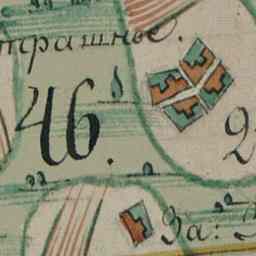 трашное.
46.
2
За: